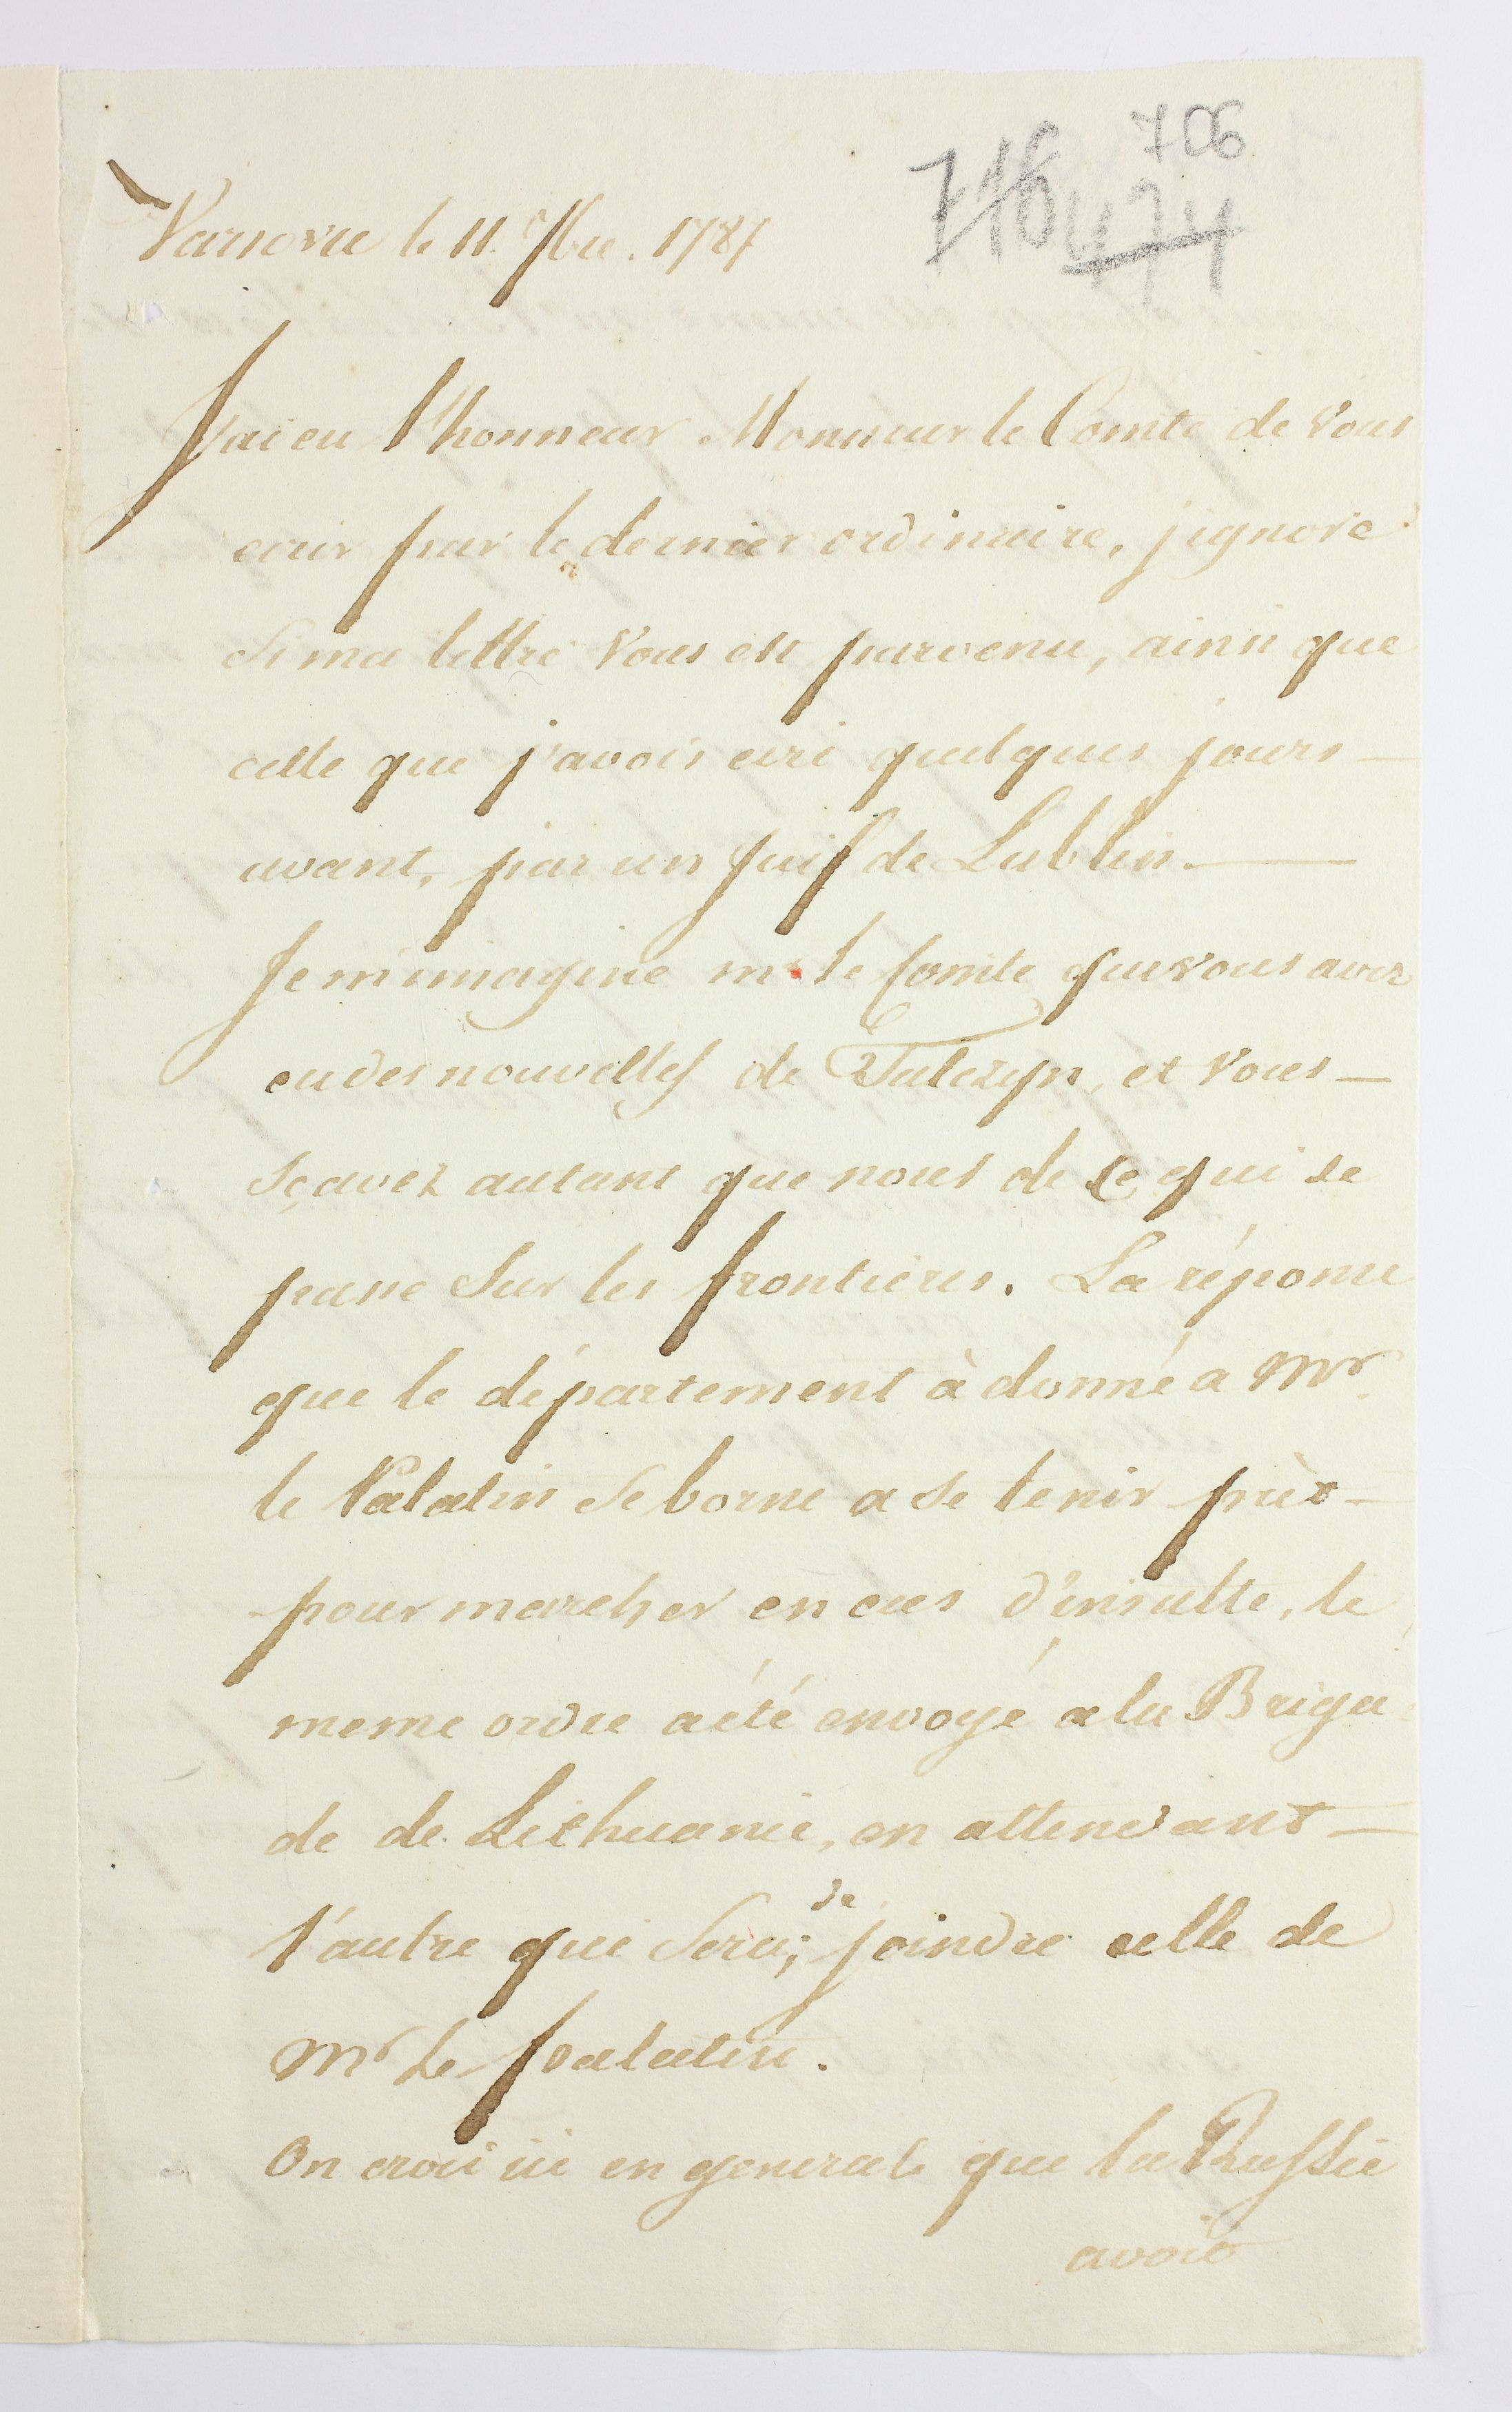 706
716 474
Varsovie le 11. 7bre. 1787
J'ai eu l'honneur Monsieur le Comte de Vous
ecrir par le dernier ordinaire, j'ignore
Si ma lettre Vous est parvenu, ainsi que
celle que j'avois ecri quelques jours —
avant, par un juif de Lublin. —
Je m'imagine mr le Comte que vous avez
eu des nouvelles de Tulczyn, et Vous —
sçavez autant que nous de ce qui se
passe Sur les frontieres. La réponse
que le département à donné a Mr.
le Palatin Se borne a se tenir prèt —
pour marcher en cas d'insulte, le
meme ordre a été envoyé a la Briga
de de Lithuanie, en attendant —
l'autre que Sera; de joindre celle de
Mr le palatin.
On croi ici en generale que la Russie
avoit